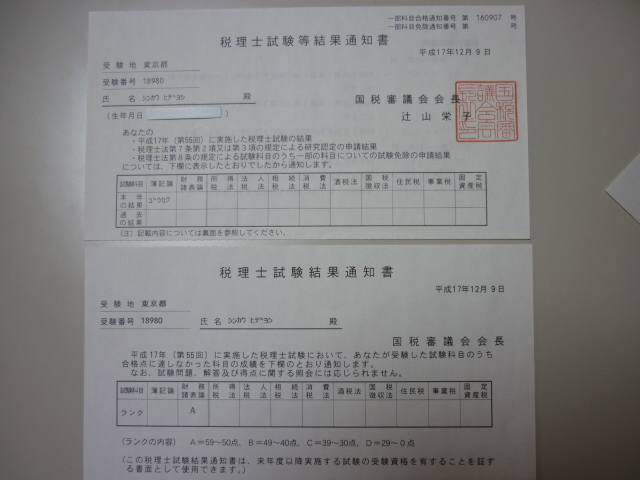 一部科目合格通知番号 第 160907 号
一部科目免除通知番号 第 号
税理士試験等結果通知書
平成17年12月 9 日
受 験 地 東京都
受験番号 18980
氏 名 ｼﾝｶﾜ ﾋﾃﾞﾖｼ 殿
(生年月日 )
国税審議会会長
辻 山 栄 子
あなたの
・平成17年 (第55回) に実施した税理士試験の結果
・税理士法第７条第２項又は第３項の規定による研究認定の申請結果
・税理士法第８条の規定による試験科目のうち一部の科目についての試験免除の申請結果
については、下欄に表示したとおりでしたから通知します。
試験科目 簿記論 財務諸表論 所得税法 法人税法 相続税法 消費税法 酒税法 国税徴収法 住民税 事業税 固定資産税
本年の結果 ｺﾞｳｶｸ
過去の結果
(注) 記載内容については裏面を参照してください。
税理士試験結果通知書
平成17年12月 9 日
受 験 地 東京都
受験番号 18980 氏 名 ｼﾝｶﾜ ﾋﾃﾞﾖｼ 殿
国税審議会会長
平成17年 (第55回) に実施した税理士試験において、あなたが受験した試験科目のうち
合格点に達しなかった科目の成績を下欄のとおり通知します。
なお、試験問題、解答及び得点に関する照会には応じられません。
試験科目 簿記論 財務諸表論 所得税法 法人税法 相続税法 消費税法 酒税法 国税徴収法 住民税 事業税 固定資産税
ランク A
(ランクの内容) A＝59～50点、B＝49～40点、C＝39～30点、D＝29～０点
(この税理士試験結果通知書は、来年度以降実施する試験の受験資格を有することを証す
る書面として使用できます。)